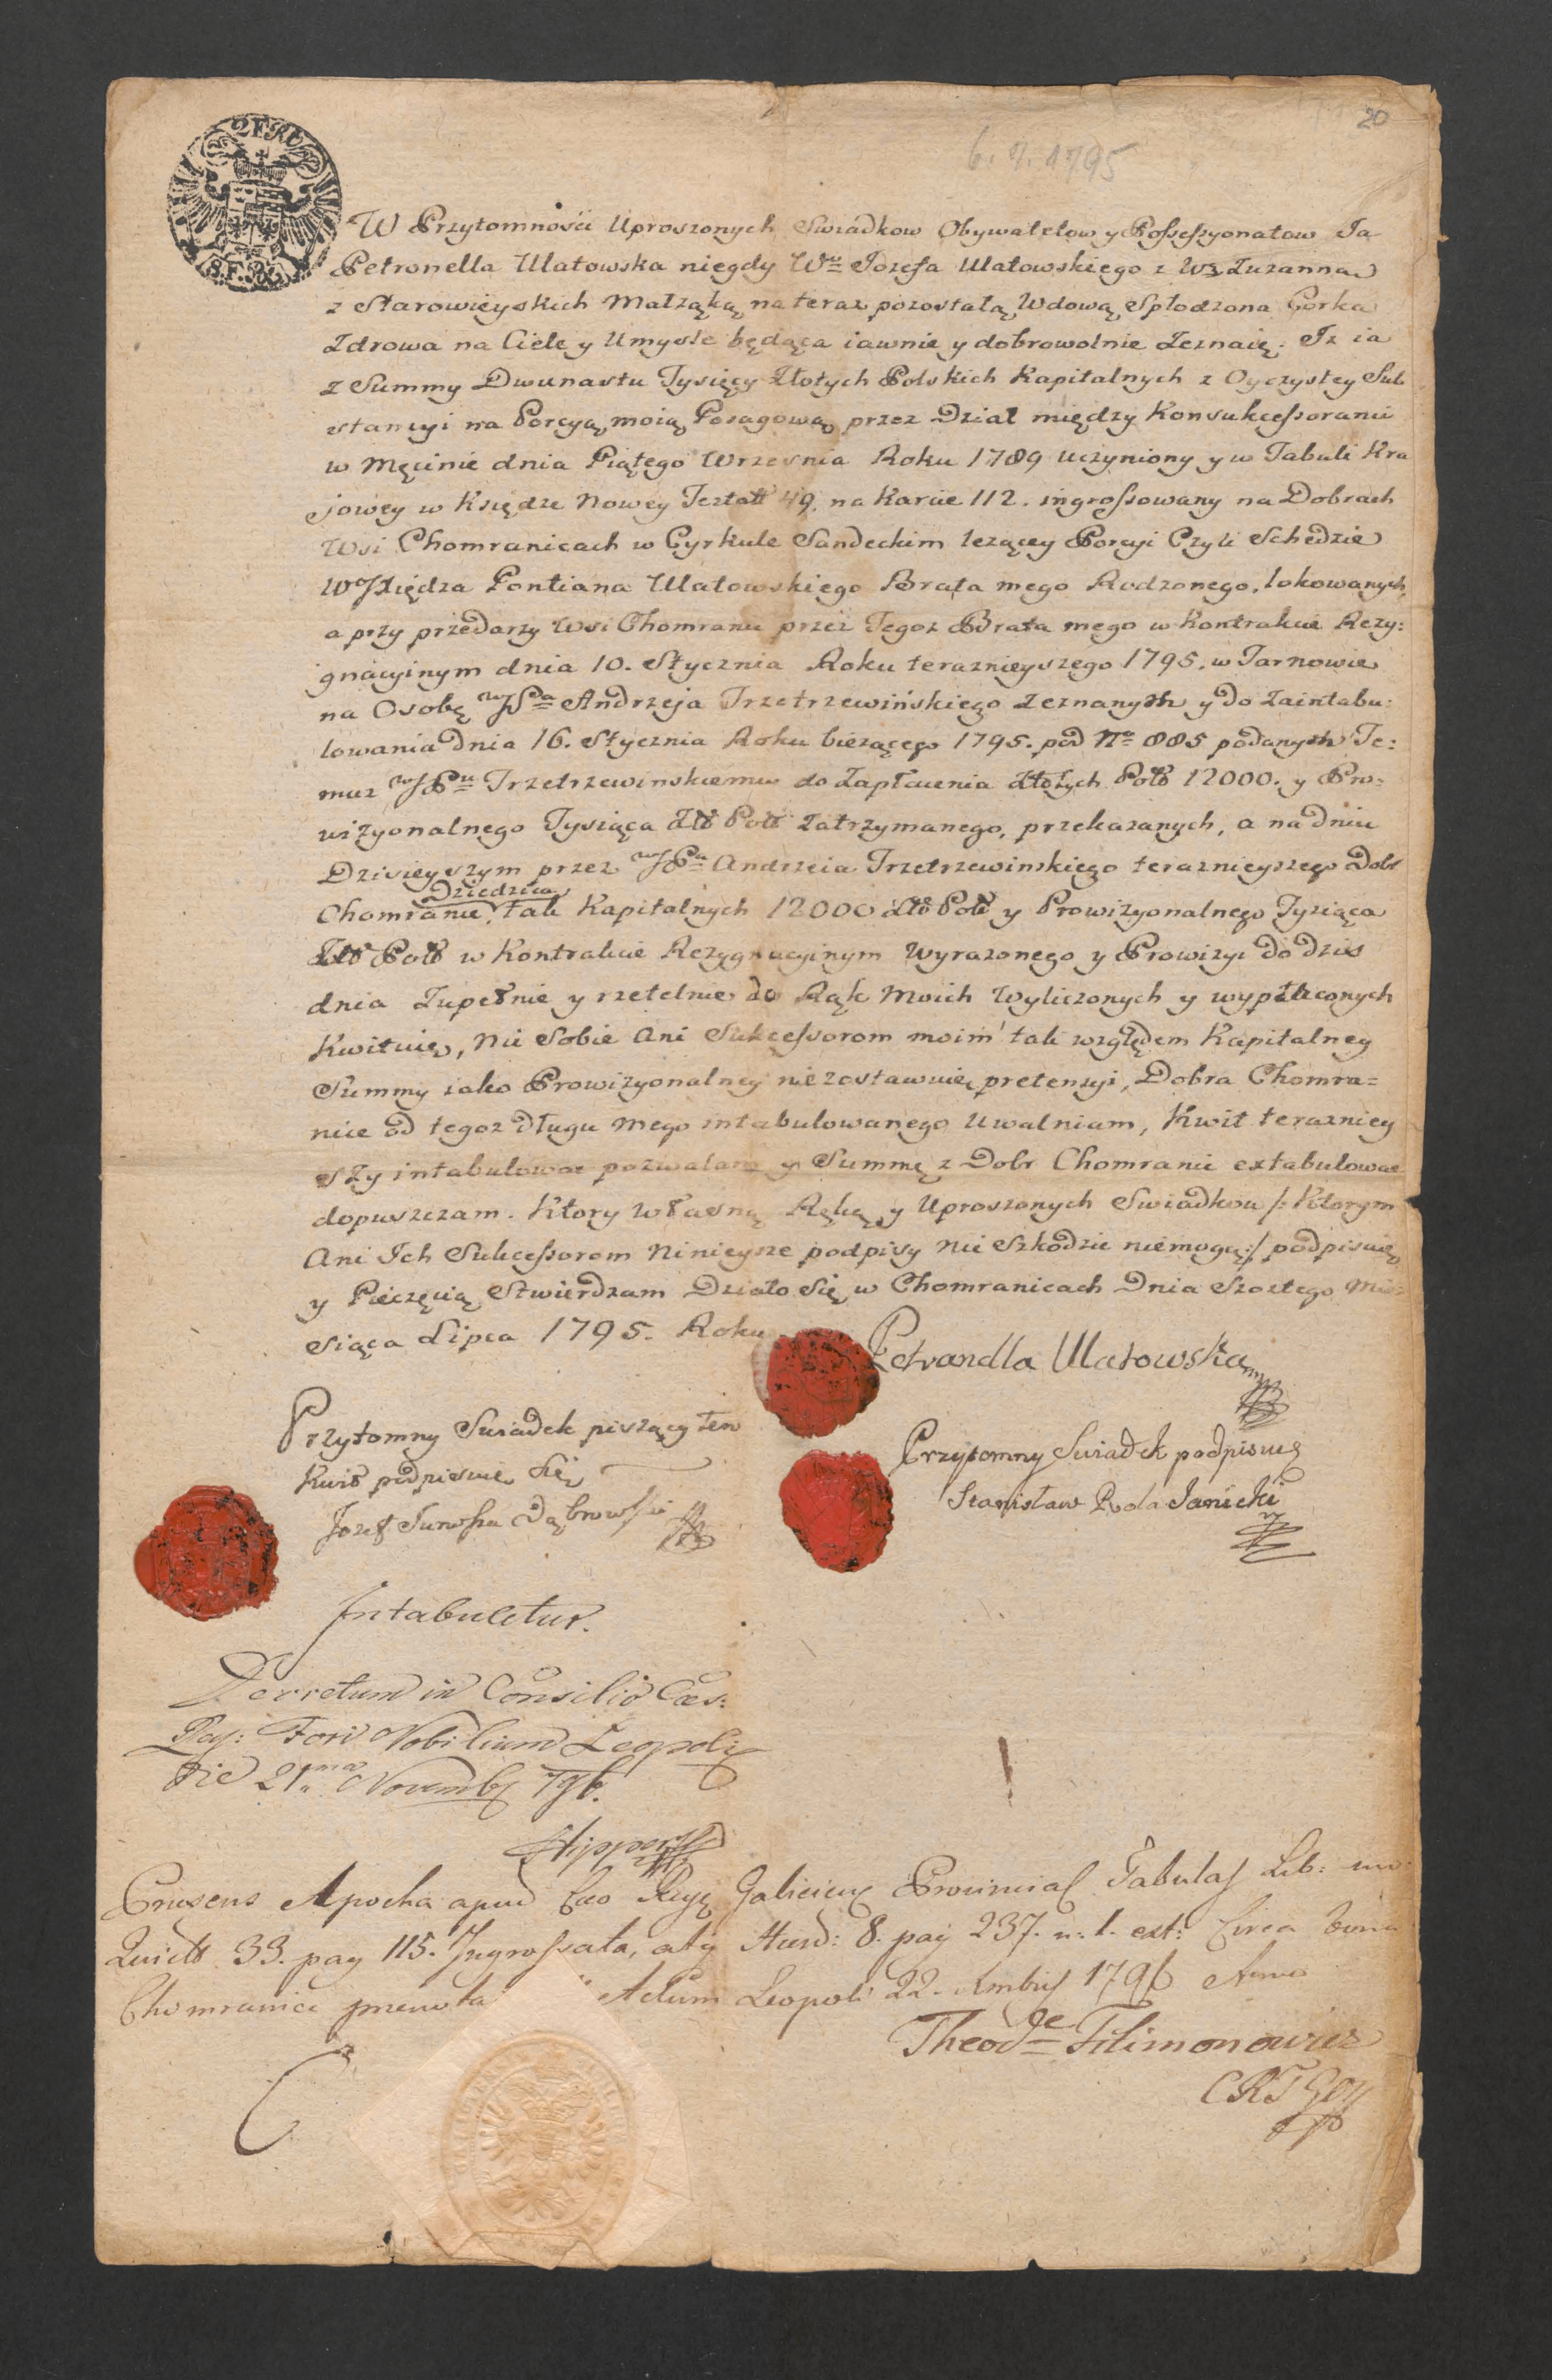 20
6. 7. 1795
2 FR
W Przytomności Uproszonych Swiadkow Obywatelow y Possessyonatow Ja
Petronella Ulatowska niegdy Wo Jozefa Ulatowskiego z Wż Zuzanną
z Starowieyskich Małżąką na teraz pozostałą Wdową Spłodzona Corka
Zdrowa na Ciele y Umyśle będąca iawnie y dobrowolnie Zeznaię. Iż ia
z Summy Dwunastu Tysięcy Złotych Polskich Kapitalnych z Oyczystey Sub
stancyi na Porcyą moią Posagową przez Dział między Konsukcessorami
w Męcinie dnia Piątego Wrzesnia Roku 1789 uczyniony y w Tabuli Kra
jowey w Księdze Nowey Jeztatt 49. na Karcie 112. ingrossowany na Dobrach
Wsi Chomranicach w Cyrkule Sandeckim leżącey Porcyi Czyli Schedzie
Księdza Pontiana Ulatowskiego Brata mego Rodzonego, lokowanych,
a przy przedarzy Wsi Chomranic przez Tegoz Brata mego w Kontrakcie Rezy:
gnacyinym dnia 10. Stycznia Roku teraznieyszego 1795. w Tarnowie
na Osobę Andrzeja Trzetrzewińskiego zeznanych y do Zaintabu:
lowania dnia 16. Stycznia Roku bieżącego 1795. pod No 885 podanych Te:
muz Trzetrzewinskiemu do Zapłacenia Złotych Pol 12000. y Pro:
wizyonalnego Tysiąca Zło Pol Zatrzymanego, przekazanych, a na dniu
Dzisieyszym przez Andrzeia Trzetrzewinskiego teraznieyszego Dobr
Dziedzica
Chomranic, tak Kapitalnych 12000 Zło Pol y Prowizyonalnego Tysiąca
Zło Pol w Kontrakcie Rezygnacyinym wyrazonego y Prowizyi do dzis
dnia Zupełnie y rzetelnie do Rąk Moich Wyliczonych y wypłaconych
Kwituię, Nic Sobie Ani Sukcessorom moim tak względem Kapitalney
Summy iako Prowizyonalney niezostawuię pretensyi, Dobra Chomra=
nice od tegoz długu Mego intabulowanego Uwalniam, Kwit teraznieg
szy intabulowac pozwalam y Summę z Dobr Chomranic extabulowac
dopuszczam. Ktory własną Ręką y Uproszonych Swiadkow /: Ktorym
Ani Ich Sukcessorom Ninieysze podpisy nic Szkodzic niemogą :/ podpisuię
y Pieczęcią Stwierdzam Działo Się w Chomranicach Dnia Szostego Mie
siąca Lipca 1795. Roku
Petronella Ulatowska
Przytomny Swiadek piszący ten
Kwit podpisuię Się
Jozef Junosza Dąbrowski
Przytomny Swiadek podpisuię
Stanisław Rola Janicki
Intabuletur.
Decretum in Consilio Caes:
Reg: Fori Nobilium Leopoli
Die 21ma Novemb 796.
Praesens Apocha apud Caeo Regę Galiciens Provincial Tabulas Lib:
Quiett 33. pag 115. Ingrossata, atq Haered: 8. pag 237. n. 1. ext: Circa bona
Chomranice Actum Leopoli 22. 1796
Theod Filimonowicz